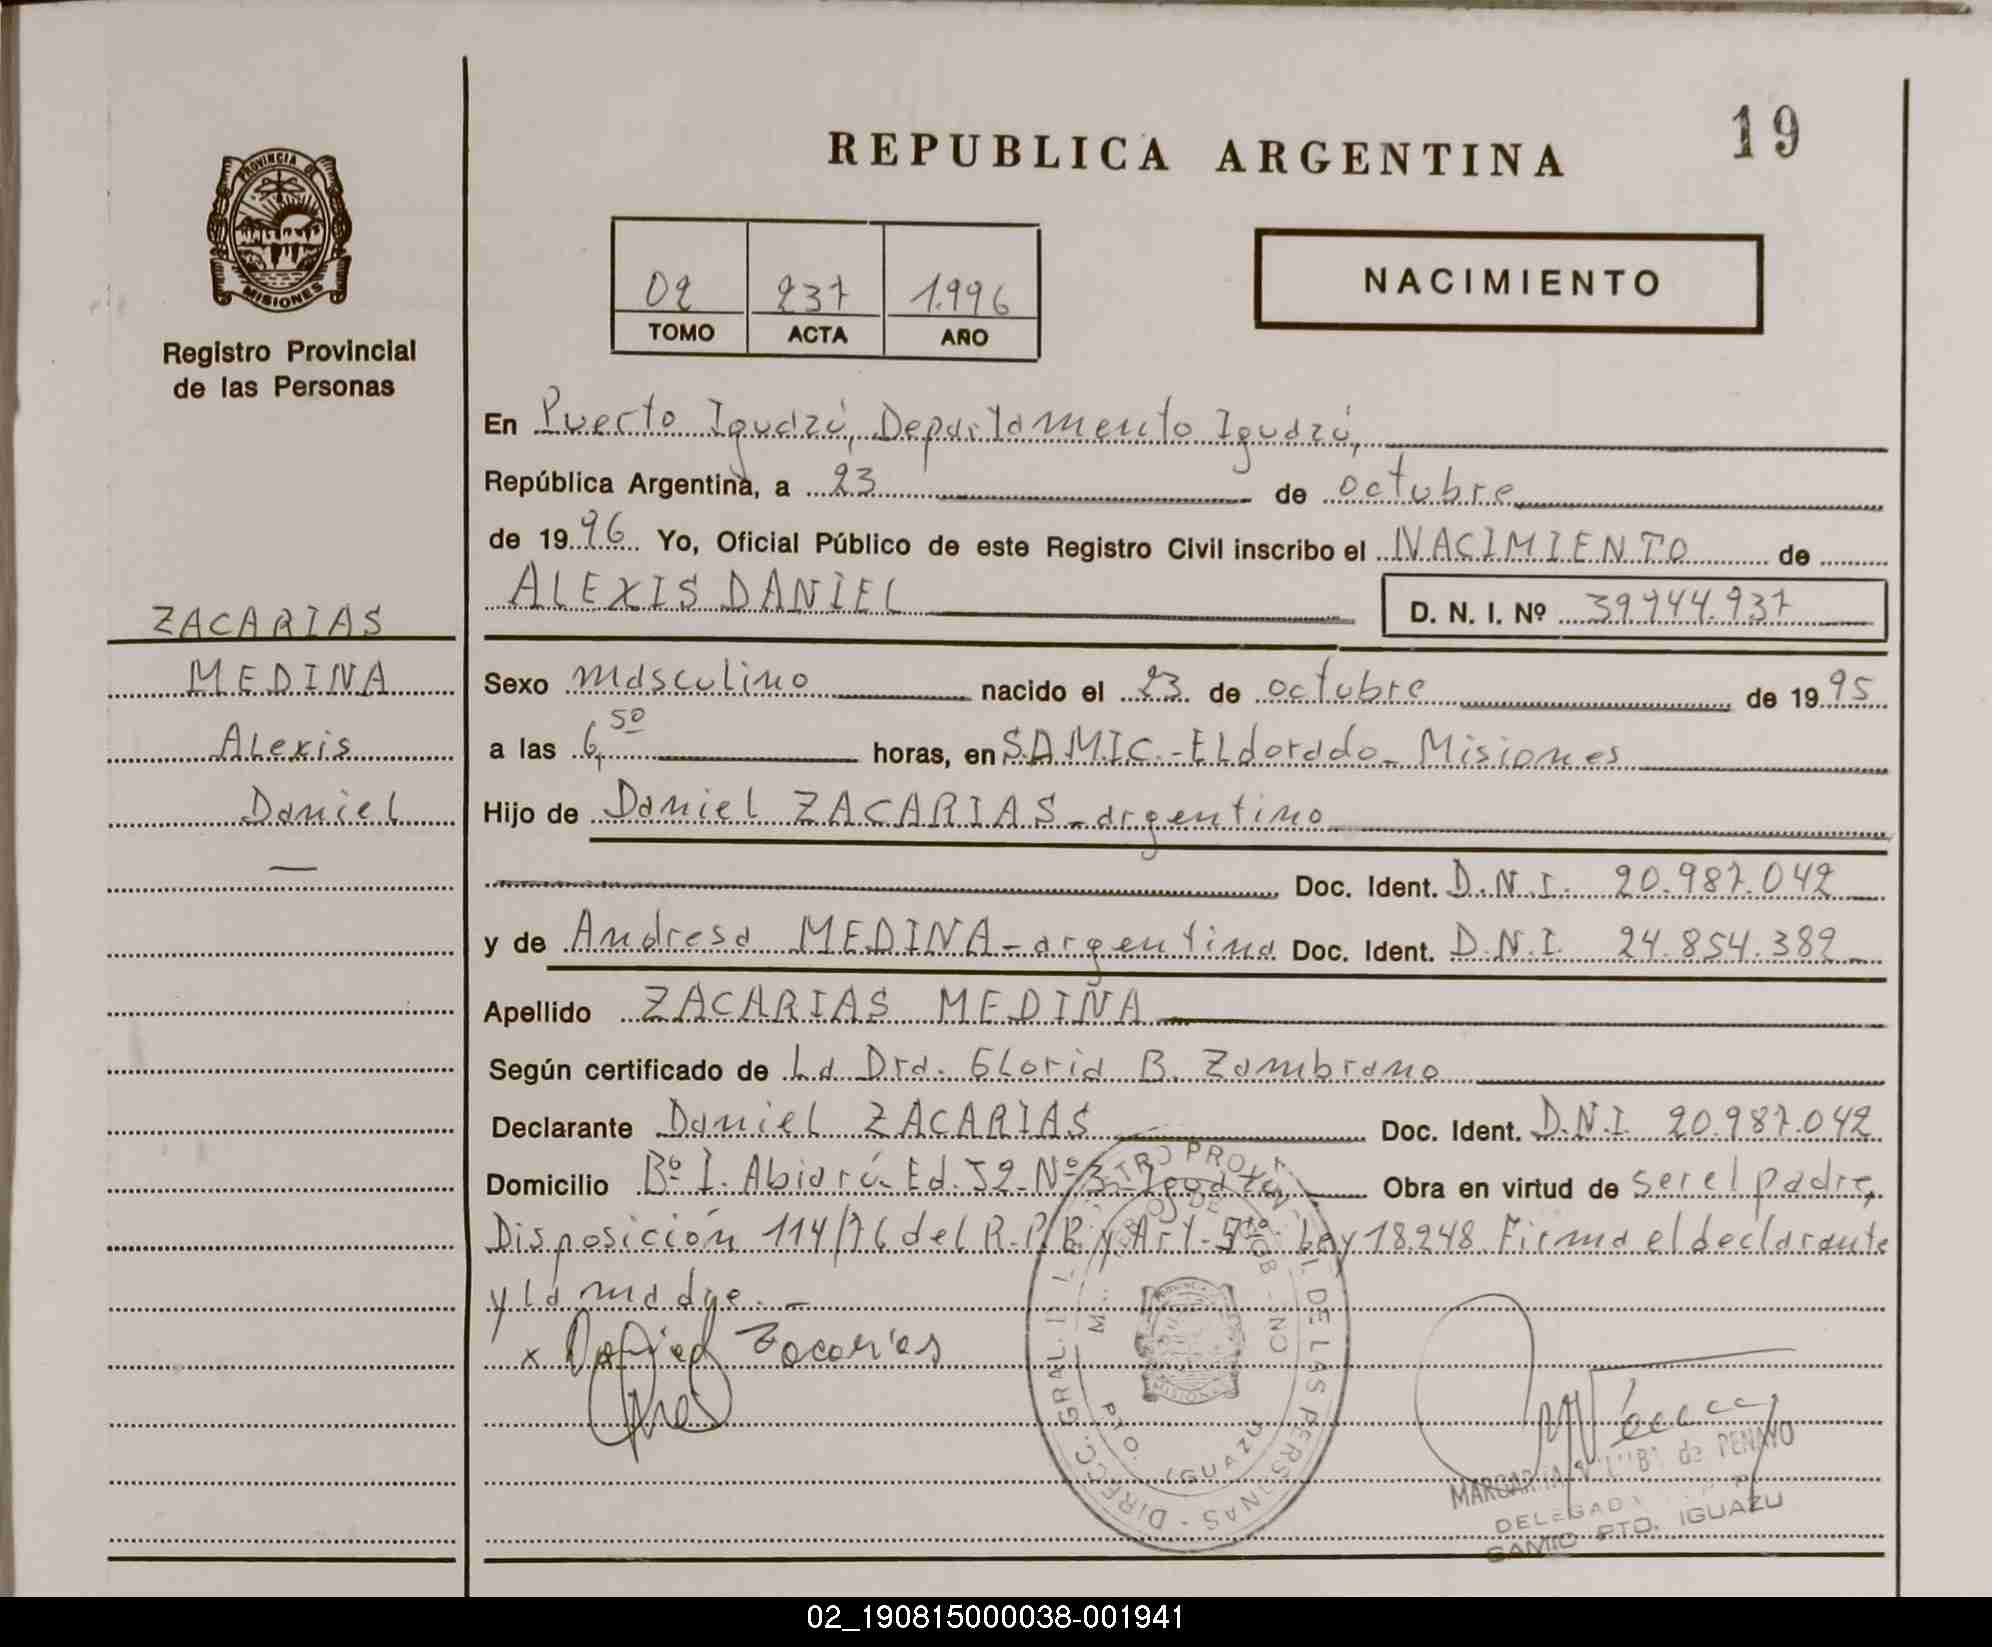 REPUBLICA ARGENTINA
19
PROVINCIA DE
MISIONES
Registro Provincial
de las Personas
02 237 1.996
TOMO ACTA AÑO
NACIMIENTO
En Puerto Iguazú, Departamento Iguazú,
República Argentina, a 23 de octubre
de 1996 Yo, Oficial Público de este Registro Civil inscribo el NACIMIENTO de
ALEXIS DANIEL
D. N. I. Nº 39.944.937
ZACARIAS
MEDINA
Alexis
Daniel
Sexo masculino nacido el 23 de octubre de 1995
a las 6,50 horas, en S.A.M.I.C.-Eldorado-Misiones
Hijo de Daniel ZACARIAS-argentino
Doc. Ident. D.N.I. 20.987.042
y de Andresa MEDINA-argentina Doc. Ident. D.N.I. 24.854.382
Apellido ZACARIAS MEDINA
Según certificado de La Dra. Gloria B. Zambrano
Declarante Daniel ZACARIAS Doc. Ident. D.N.I. 20.987.042
Domicilio Bº I. Abiarú-Ed.52-Nº3-Iguazú Obra en virtud de ser el padre,
Disposición 114/76 del R.P.P. y Art. 5to. Ley 18.248. Firma el declarante
y la madre.-
x Daniel Zacarias
DIRECC. GRAL. DE LAS PERSONAS
PTO. IGUAZU
MISIONES
de PENAYO
PTO. IGUAZU
02_190815000038-001941